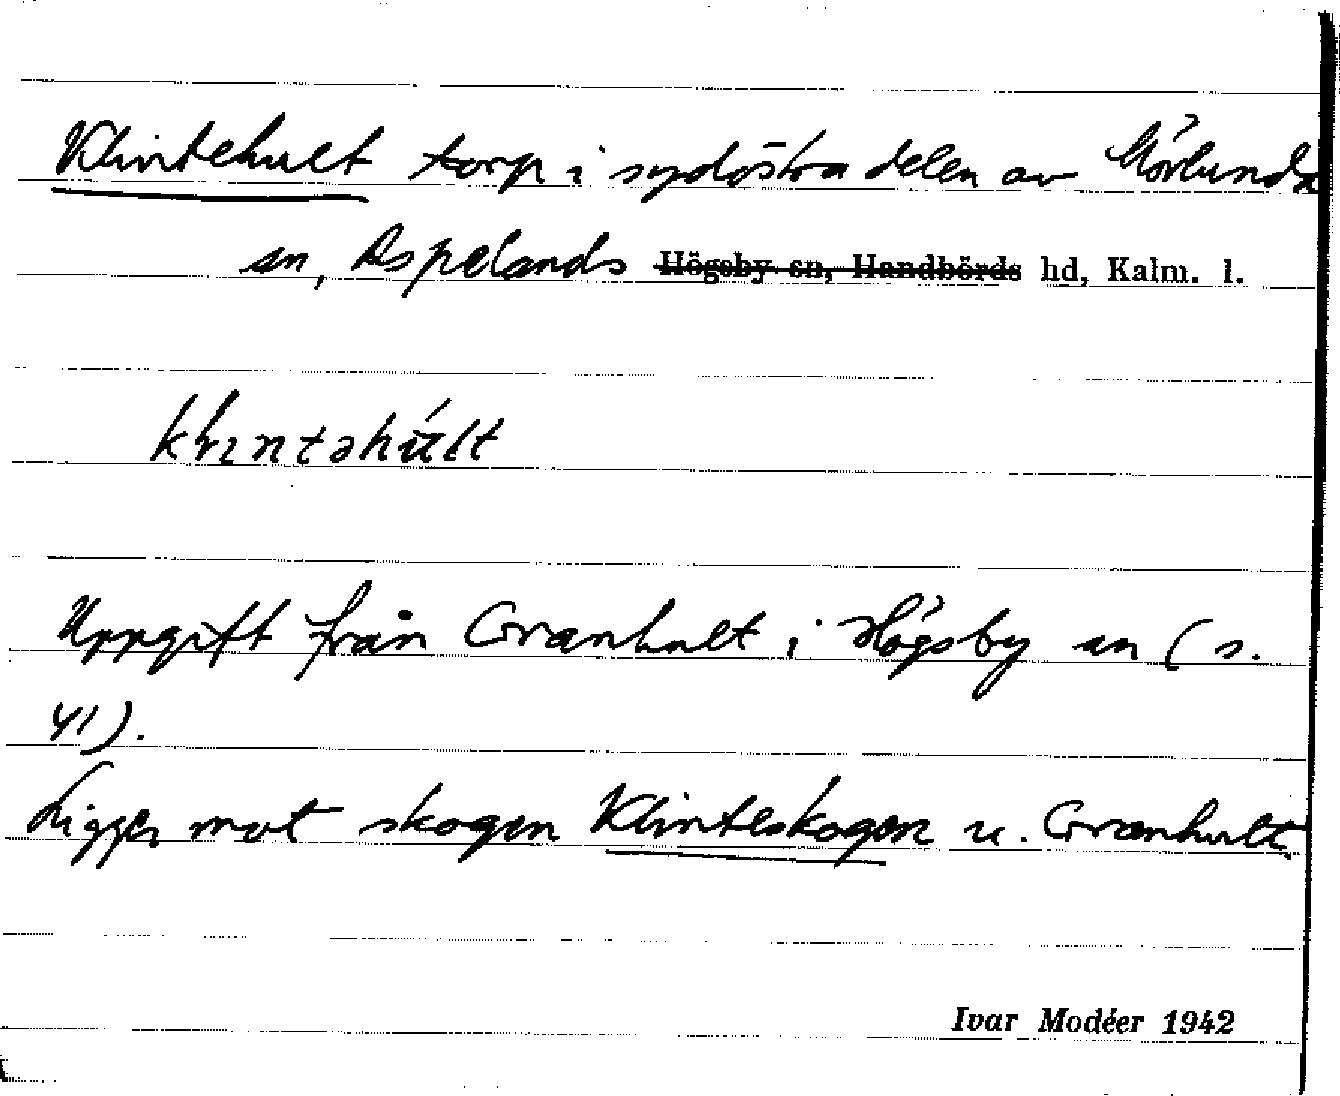 Klintehult torp i sydöstra delen av Mörlunda
sn, Aspelands Högsby sn, Handbörds hd, Kalm. l.
Uppgift från Granhult i Högsby sn (s.
41).
Ligger mot skogen Klinteskogen u. Granhult.
Ivar Modéer 1942